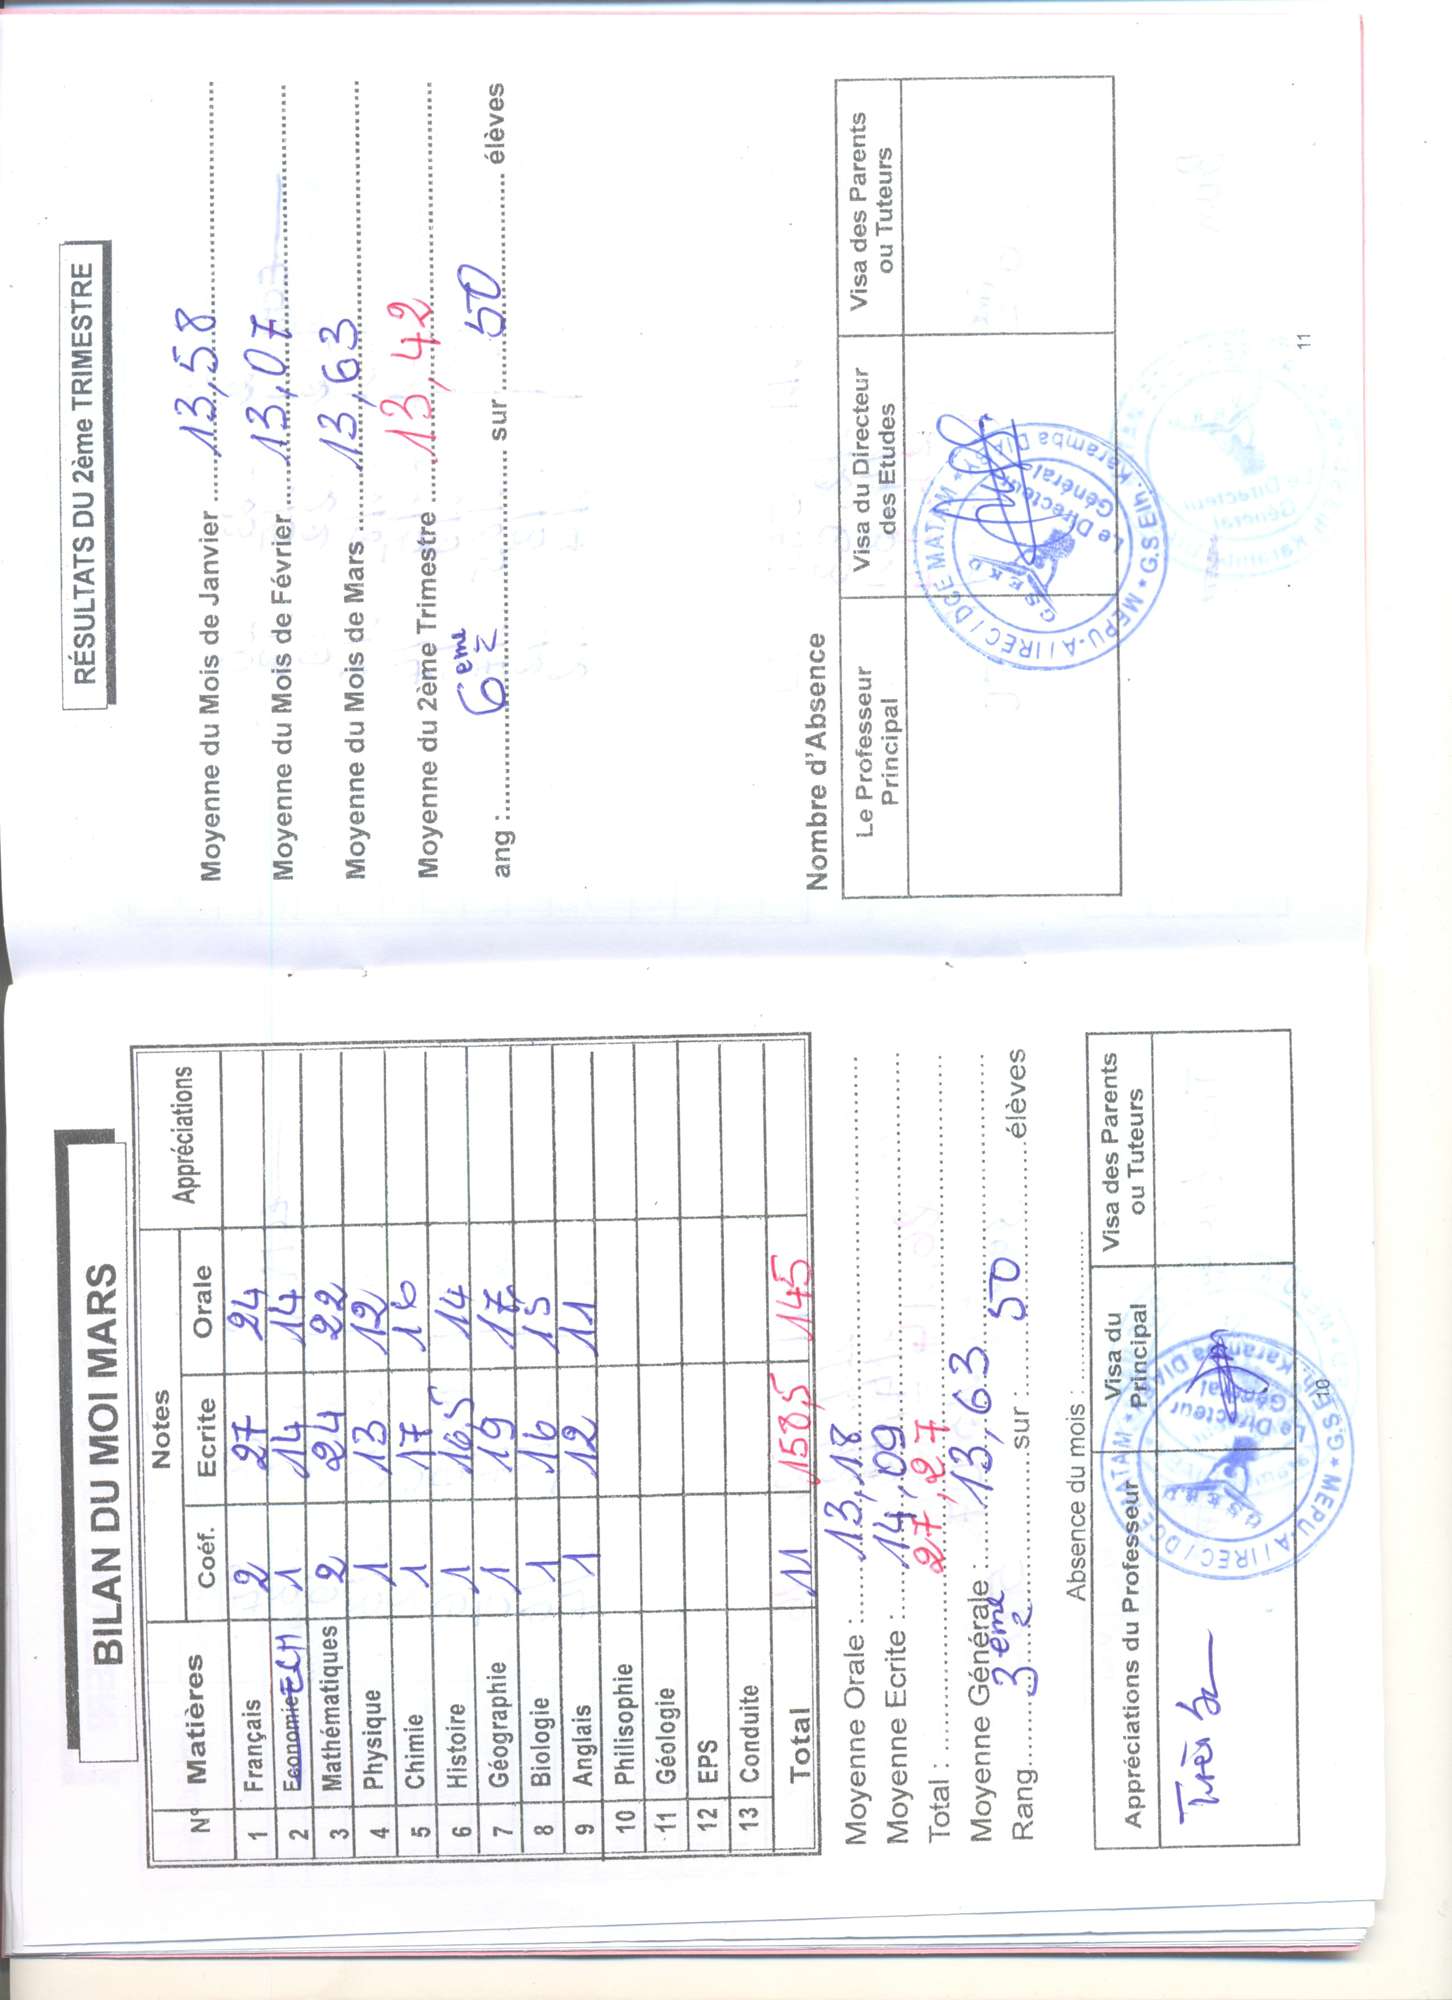 BILAN DU MOI MARS
N° Matières Notes Appréciations
Coéf. Ecrite Orale
1 Français 2 27 24
2 Economie ECM 1 14 14
3 Mathématiques 2 24 22
4 Physique 1 13 12
5 Chimie 1 17 16
6 Histoire 1 16,5 14
7 Géographie 1 19 17
8 Biologie 1 16 15
9 Anglais 1 12 11
10 Philisophie
11 Géologie
12 EPS
13 Conduite
Total 11 158,5 145
Moyenne Orale : 13,18
Moyenne Ecrite : 14,09
Total : 27,27
Moyenne Générale : 13,63
Rang 3ème sur : 50 élèves
Absence du mois :
Appréciations du Professeur Visa du Principal Visa des Parents ou Tuteurs
Très
MEPU-A / IREC / DCE MATAM * G.S Elh. Karamba DIABY *
Le Directeur Général
10
RÉSULTATS DU 2ème TRIMESTRE
Moyenne du Mois de Janvier 13,58
Moyenne du Mois de Février 13,07
Moyenne du Mois de Mars 13,63
Moyenne du 2ème Trimestre 13,42
ang : 6ème sur 50 élèves
Nombre d'Absence
Le Professeur Principal Visa du Directeur des Etudes Visa des Parents ou Tuteurs
MEPU-A / IREC / DCE MATAM * G.S Elh. Karamba DIABY *
G S E K D
Le Directeur Général
11